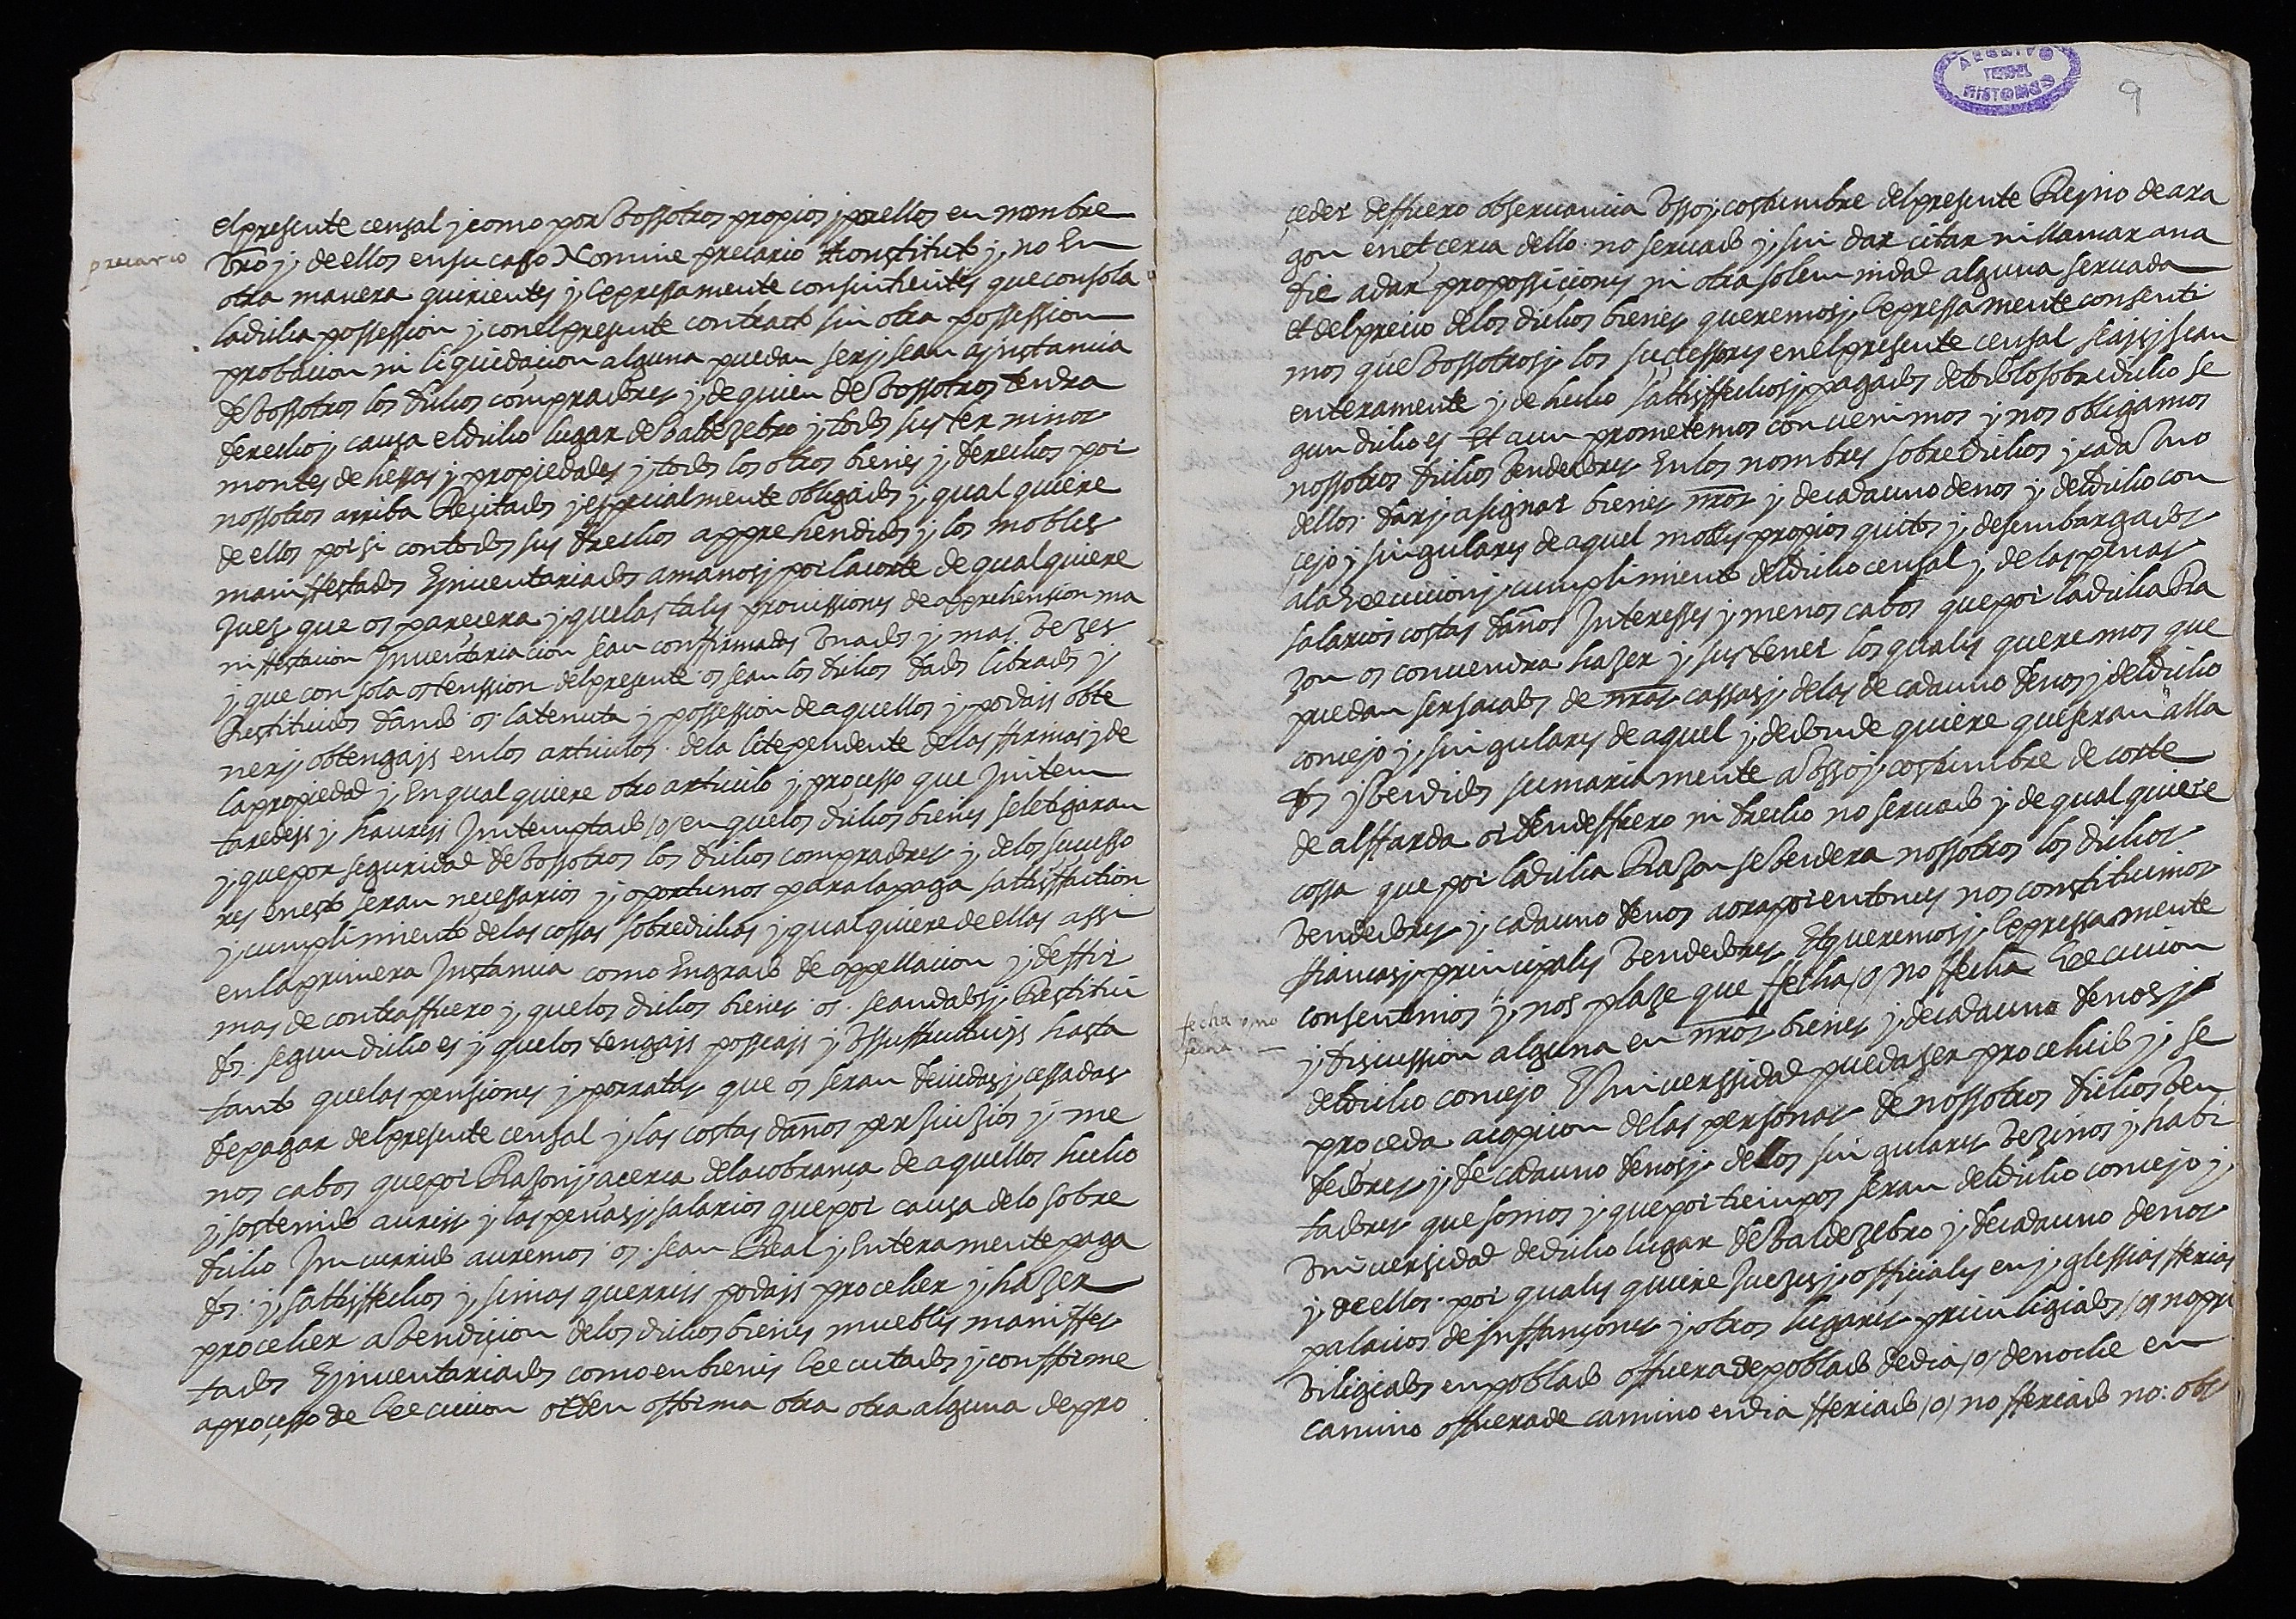 precario
el presente censal y como por Vossotros propios y por ellos en nombre
Vrõ y de ellos en su casso Nomine precario Constituto y no En
otra manera querientes y Expressamente consintientes que con sola
la dicha possession y con el presente contracto sin otra possession
probacion ni liquidaçion alguna puedan ser y sean a ynstancia
de Vossotros los dichos compradores y de quien de Vossotros tendra
derecho y causa el dicho lugar de Valdezebro y todos sus terminos
montes dehessas y propiedades y todos los otros bienes y derechos por
nossotros arriba Reçitados y espeçialmente obligados y qual quiere
de ellos por si con todos sus drechos apprehendidos y los mobles
maniffestados E ynuentariados a manos y por la corte de qual quiere
Juez que os pareçera y que las tales prouissiones de apprehension ma
niffestacion Jnuentariacion sean conffirmadas Vna dos y mas Vezes
y que con sola ostenssion del presente os sean los dichos dados librados y
Restituidos dando os la tenuta y possession de aquellos y podais obte
ner y obtengays en los articulos de la lite pendente de las ffirmas y de
la propiedad y En qual quiere otro articulo y proçesso que Jntem
taredeis y haureis Jntemptado /o/ en que los dichos bienes se letigaran
y que por seguridad de Vossotros los dichos compradores y de los sucesso
res en esto seran necessarios y oportunos para la paga sattisffaction
y cumplimiento de las cossas sobredichas y qual quiere de ellas assi
en la primera Jnstancia como En grado de appellacion y de ffir
mas de contraffuero y que los dichos bienes os sean dados y Restitui
dos segun dicho es y que los tengays posseays y Vssuffructueys hasta
tanto que las pensiones y porratas que os seran deuidas y cessadas
de pagar del presente censal y las costas daños perjuizios y me
nos cabos que por Razon y açerca de la cobrança de aquellos hecho
y sostenido aureis y las penas y salarios que por causa de lo sobre
dicho Jncurrido auremos os sean Real y Enteramente paga
dos y sattisffechos y si mas querreis podais procehir y hazer
procehir a Vendiçion de los dichos bienes muebles maniffes
tados E ynuentariados como en bienes Executados y conffirme
a proçesso de Execucion orden o fforma otra otra alguna de pro
9
çedir de ffuero obseruancia Vsso y costumbre del presente Reyno de ara
gon en et cerca dello no seruado y sin dar citar ni llamar a na
die a dar proposiçiones ni otra solemnidad alguna seruada
et del precio de los dichos bienes queremos y Expressamente consenti
mos que Vossotros y los suçessores en el presente censal seais y sean
enteramente y de hecho sattisffechos y pagados de todo lo sobredicho se
gun dicho es Et aun prometemos conuenimos y nos obligamos
nossotros dichos Vendedores En los nombres sobredichos y cada Vno
dellos dar y asignar bienes nr̃os y de cada uno de nos y del dicho con
çejo y singulares de aquel mobles propios quitos y desembargados
a la Execucion y cumplimiento del dicho censal y de las penas
salarios costas daños Interesses y menos cabos que por la dicha Ra
zon os conuendra hazer y sustener los quales queremos que
puedan ser sacados de nr̃as cassas y de las de cada uno de nos y del dicho
concejo y singulares de aquel y de donde quiere que seran alla
dos y Vendidos sumariamente a Vsso y costumbre de corte
de alffarda orden de ffuero ni drecho no seruado y de qual quiere
cossa que por la dicha Razon se Vendera nossotros los dichos
Vendedores y cada uno de nos aora por entonces nos constituimos
ffiancas y principales Vendedores Et queremos y Expressamente
fecha o no
fecha
consentimos y nos plaze que ffecha /o/ no ffecha Execucion
y discussion alguna en nr̃os bienes y de cada uno de nos y
del dicho concejo E Vniuerssidad pueda ser procehido y se
proceda a copcion de las personas de nossotros dichos Ven
dedores y de cada uno de nos y de los singulares Vezinos y habi
tadores que somos y que por tiempos seran del dicho concejo y
Vniuersidad de dicho lugar de Valdezebro y de cada uno de nos
y de ellos por quales quiere Juezes y officiales en yglessias fferias
palacios de Inffançones y otros lugares priuiligiados /o/ no pri
viligiados en poblado o ffuera de poblado de dia /o/ de noche en
camino o ffuera de camino en dia fferiado /o/ no fferiado no obs